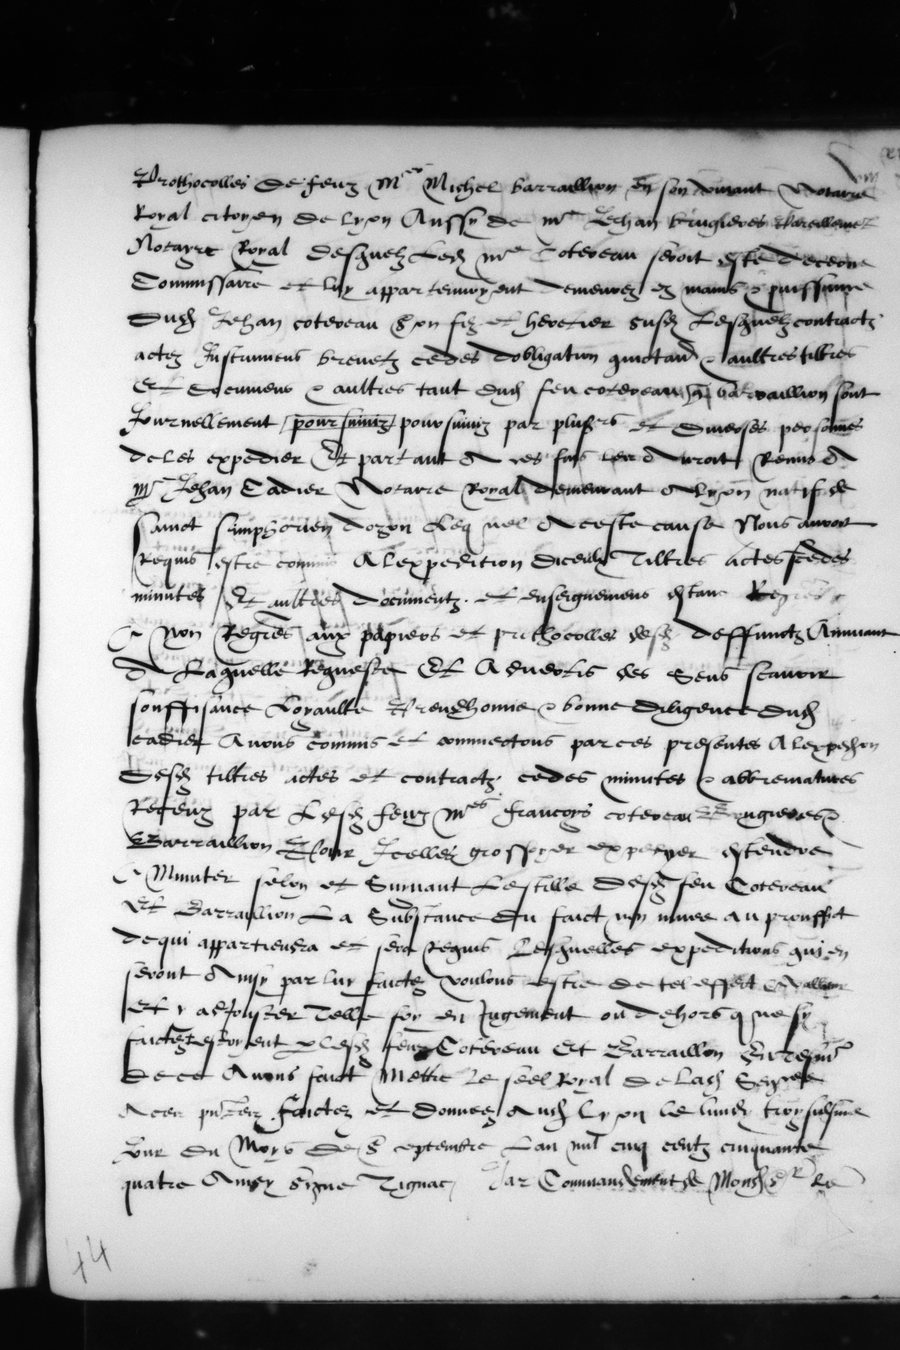 Prothocolles de feuz Me Michel barraillion en son vivant Notaire
Royal citoyen de lyon Aussy de me Jehan brugieres
Notayre Royal desquelz led me Coteveau seroit este decerne
Commissaire et luy appartenoyent demeurez es mains & puissance
dud Jehan coteveau son filz et heretier susd Lesquelz contractz
actez Instrumens brevetz cedes dobligation quictan & aultres tiltres
Et documens & aultres tant dud feu coteveau q barraillion sont
Journellement poursuiviz poursuiviz par plusrs et diverses personnes
de les expedier Et partant A ces fins
me Jehan Cadier Notaire Royal demeurant A lyon natif de
sainct simphorien dozon Lequel A ceste cause Nous auroit
Requis estre commis A lexpedition diceulx Tiltres actes cedes
minutes Et aultres documentz et enseignemens estans
& non Regres aux papiers et prothocolles desd deffunctz Annuant
A Laquelle Requeste Et Advertis des Sens scavoir
souffisance Loyaulte Preudhomie & bonne diligence dud
cadier Avons commis et commectons par ces presentes A lexpedion
Desd tiltres actes et contractz cedes minutes & abbreviatures
Receuz par Lesd feuz mes francoys coteveau Brugieres &
Barraillion Pour Icelles grossoyer expedyer estendre
& Minuter selon et Suivant Le stille desd feu Coteveau
Et Barraillion La Substance du faict non muee au prouffit
de qui appartiendra et sera Requis Lesquelles expeditions qui en
seront Ainsy par luy faictes voulons estre de tel effect & valleur
Et y adjouster Telle foy en Jugement ou dehors que sy
faictes estoyent p lesd feuz Coteveau Et Barraillon
de ce Avons faict Mettre Le seel Royal de Lad
A ces pntes faictes et donnees Aud Lyon le lundy troysiesme
Jour du Moys de Septembre Lan mil cinq centz cinquante
quatre Ainsy signe Tignac Par Commandement de Monsd sr Le
44